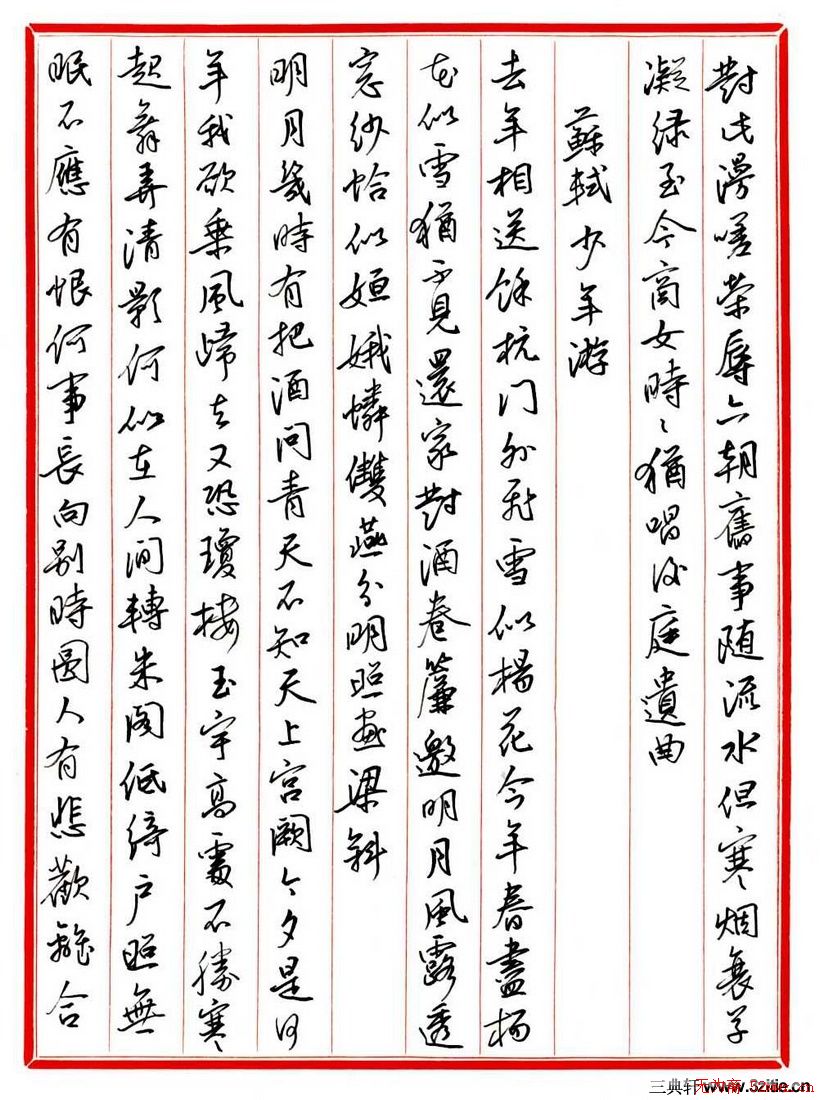 對此漫嗟榮辱六朝舊事随流水但寒烟衰草
凝绿至今商女時々猶唱後庭遺曲
蘇軾少年游
去年相送餘杭门外飛雪似楊花今年春盡楊
花似雪猶不見還家對酒卷簾邀明月風露透
窓纱恰似姮娥憐雙燕分明照画梁斜
明月幾時有把酒问青天不知天上宫阙今夕是何
年我欲乗風歸去又恐瓊楼玉宇高處不勝寒
起舞弄清影何似在人间轉朱阁低绮户照無
眠不應有恨何事長向别時圆人有悲歡離合
三典轩www.52itie.cn